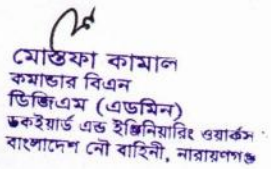 মোস্তফা কামাল
কমান্ডার বিএন
ডিজিএম (এডমিন)
ডকইয়ার্ড এন্ড ইঞ্জিনিয়ারিং ওয়ার্কস
বাংলাদেশ নৌ বাহিনী, নারায়ণগঞ্জ